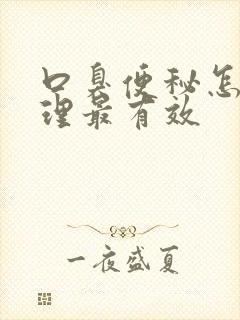 口臭便秘怎
理最有效
一夜盛夏